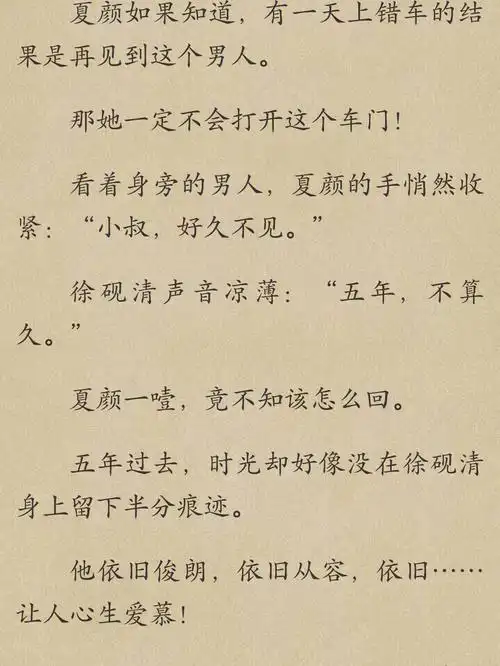 夏颜如果知道，有一天上错车的结
果是再见到这个男人。
那她一定不会打开这个车门！
看着身旁的男人，夏颜的手悄然收
紧：“小叔，好久不见。”
徐砚清声音凉薄：“五年，不算
久。”
夏颜一噎，竟不知该怎么回。
五年过去，时光却好像没在徐砚清
身上留下半分痕迹。
他依旧俊朗，依旧从容，依旧……
让人心生爱慕！